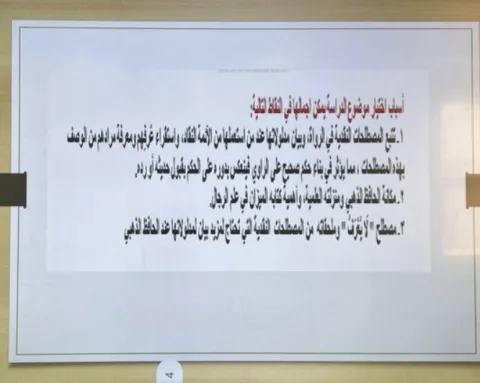 أسباب اختيار موضوع الدراسة يمكن اجمالها في النقاط التالية:
١ـ تتبع المصطلحات النقدية في الرواة، وبيان مدلولاتها عند من استعملها من الأئمة النقاد، واستقراء عُرفهم ومعرفة مرادهم من الوصف
بهذه المصطلحات ، مما يؤثر في بناء حكم صحيح على الراوي فينعكس بدوره على الحكم بقبول حديثه أو رده.
٢ـ مكانة الحافظ الذهبي ومنزلته العلمية، وأهمية كتابه الميزان في علم الرجال.
٣ـ مصطلح " لَا يُعْرَفُ " وملحقاته من المصطلحات النقدية التي تحتاج لمزيد بيان لمدلولاتها عند الحافظ الذهبي
4